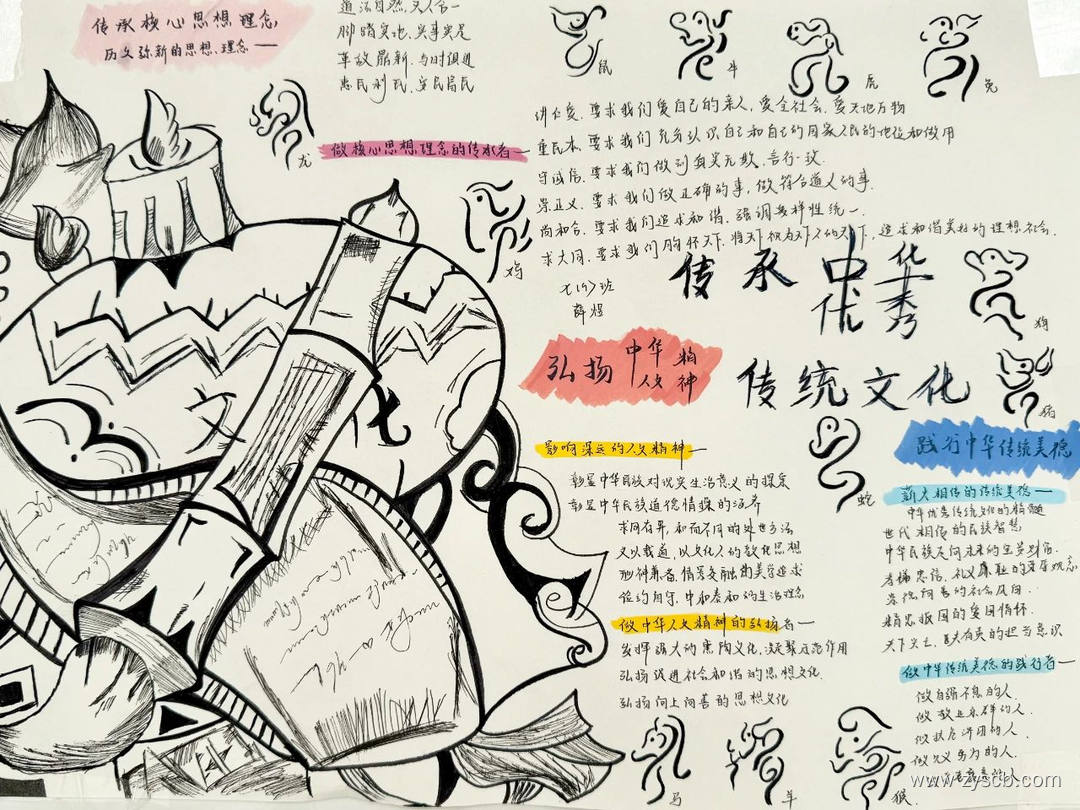 传承核心思想理念
历久弥新的思想、理念一
道法自然，天人合一
脚踏实地，实事实是
革故鼎新，与时俱进
惠民利民，安民富民
鼠
牛
虎
兔
龙
做核心思想理念的传承者一
讲仁爱，要求我们爱自己的亲人，爱全社会，爱天地万物
重民本，要求我们充分认识自己和自己的国家人民的地位和做用
守诚信，要求我们做到真实无欺，言行一致.
崇正义，要求我们做正确的事，做符合道义的事.
尚和合，要求我们追求和谐，强调多样性统一.
求大同，要求我们胸怀天下，将天下视为天下人的天下，追求和谐美好的理想社会.
鸡
七(17)班
薛煜
传承中华
优秀
传统文化
狗
猪
弘扬中华
人文
精神
影响深远的人文精神一
彰显中华民族对现实生活意义的探索
彰显中华民族道德情操的涵养
求同存异，和而不同的处世方法
文以载道，以文化人的教化思想
形神兼备，情景交融的美学追求
俭约自守，中和泰和的生活理念
做中华人文精神的弘扬者一
发挥强大的熏陶文化，凝聚示范作用
弘扬促进社会和谐的思想文化
弘扬向上向善的思想文化
蛇
践行中华传统美德
薪火相传的传统美德一
中华优秀传统文化的精髓
世代相传的民族智慧
中华民族走向未来的宝贵财富.
孝悌忠信，礼义廉耻的荣辱观念
崇德向善的社会风尚.
精忠报国的爱国情怀.
天下兴亡，匹夫有责的担当意识
做中华传统美德的践行者一
做自强不息的人.
做敬业乐群的人.
做扶危济困的人.
做见义勇为的人.
马
羊
猴
文
化
www.zyscb.com